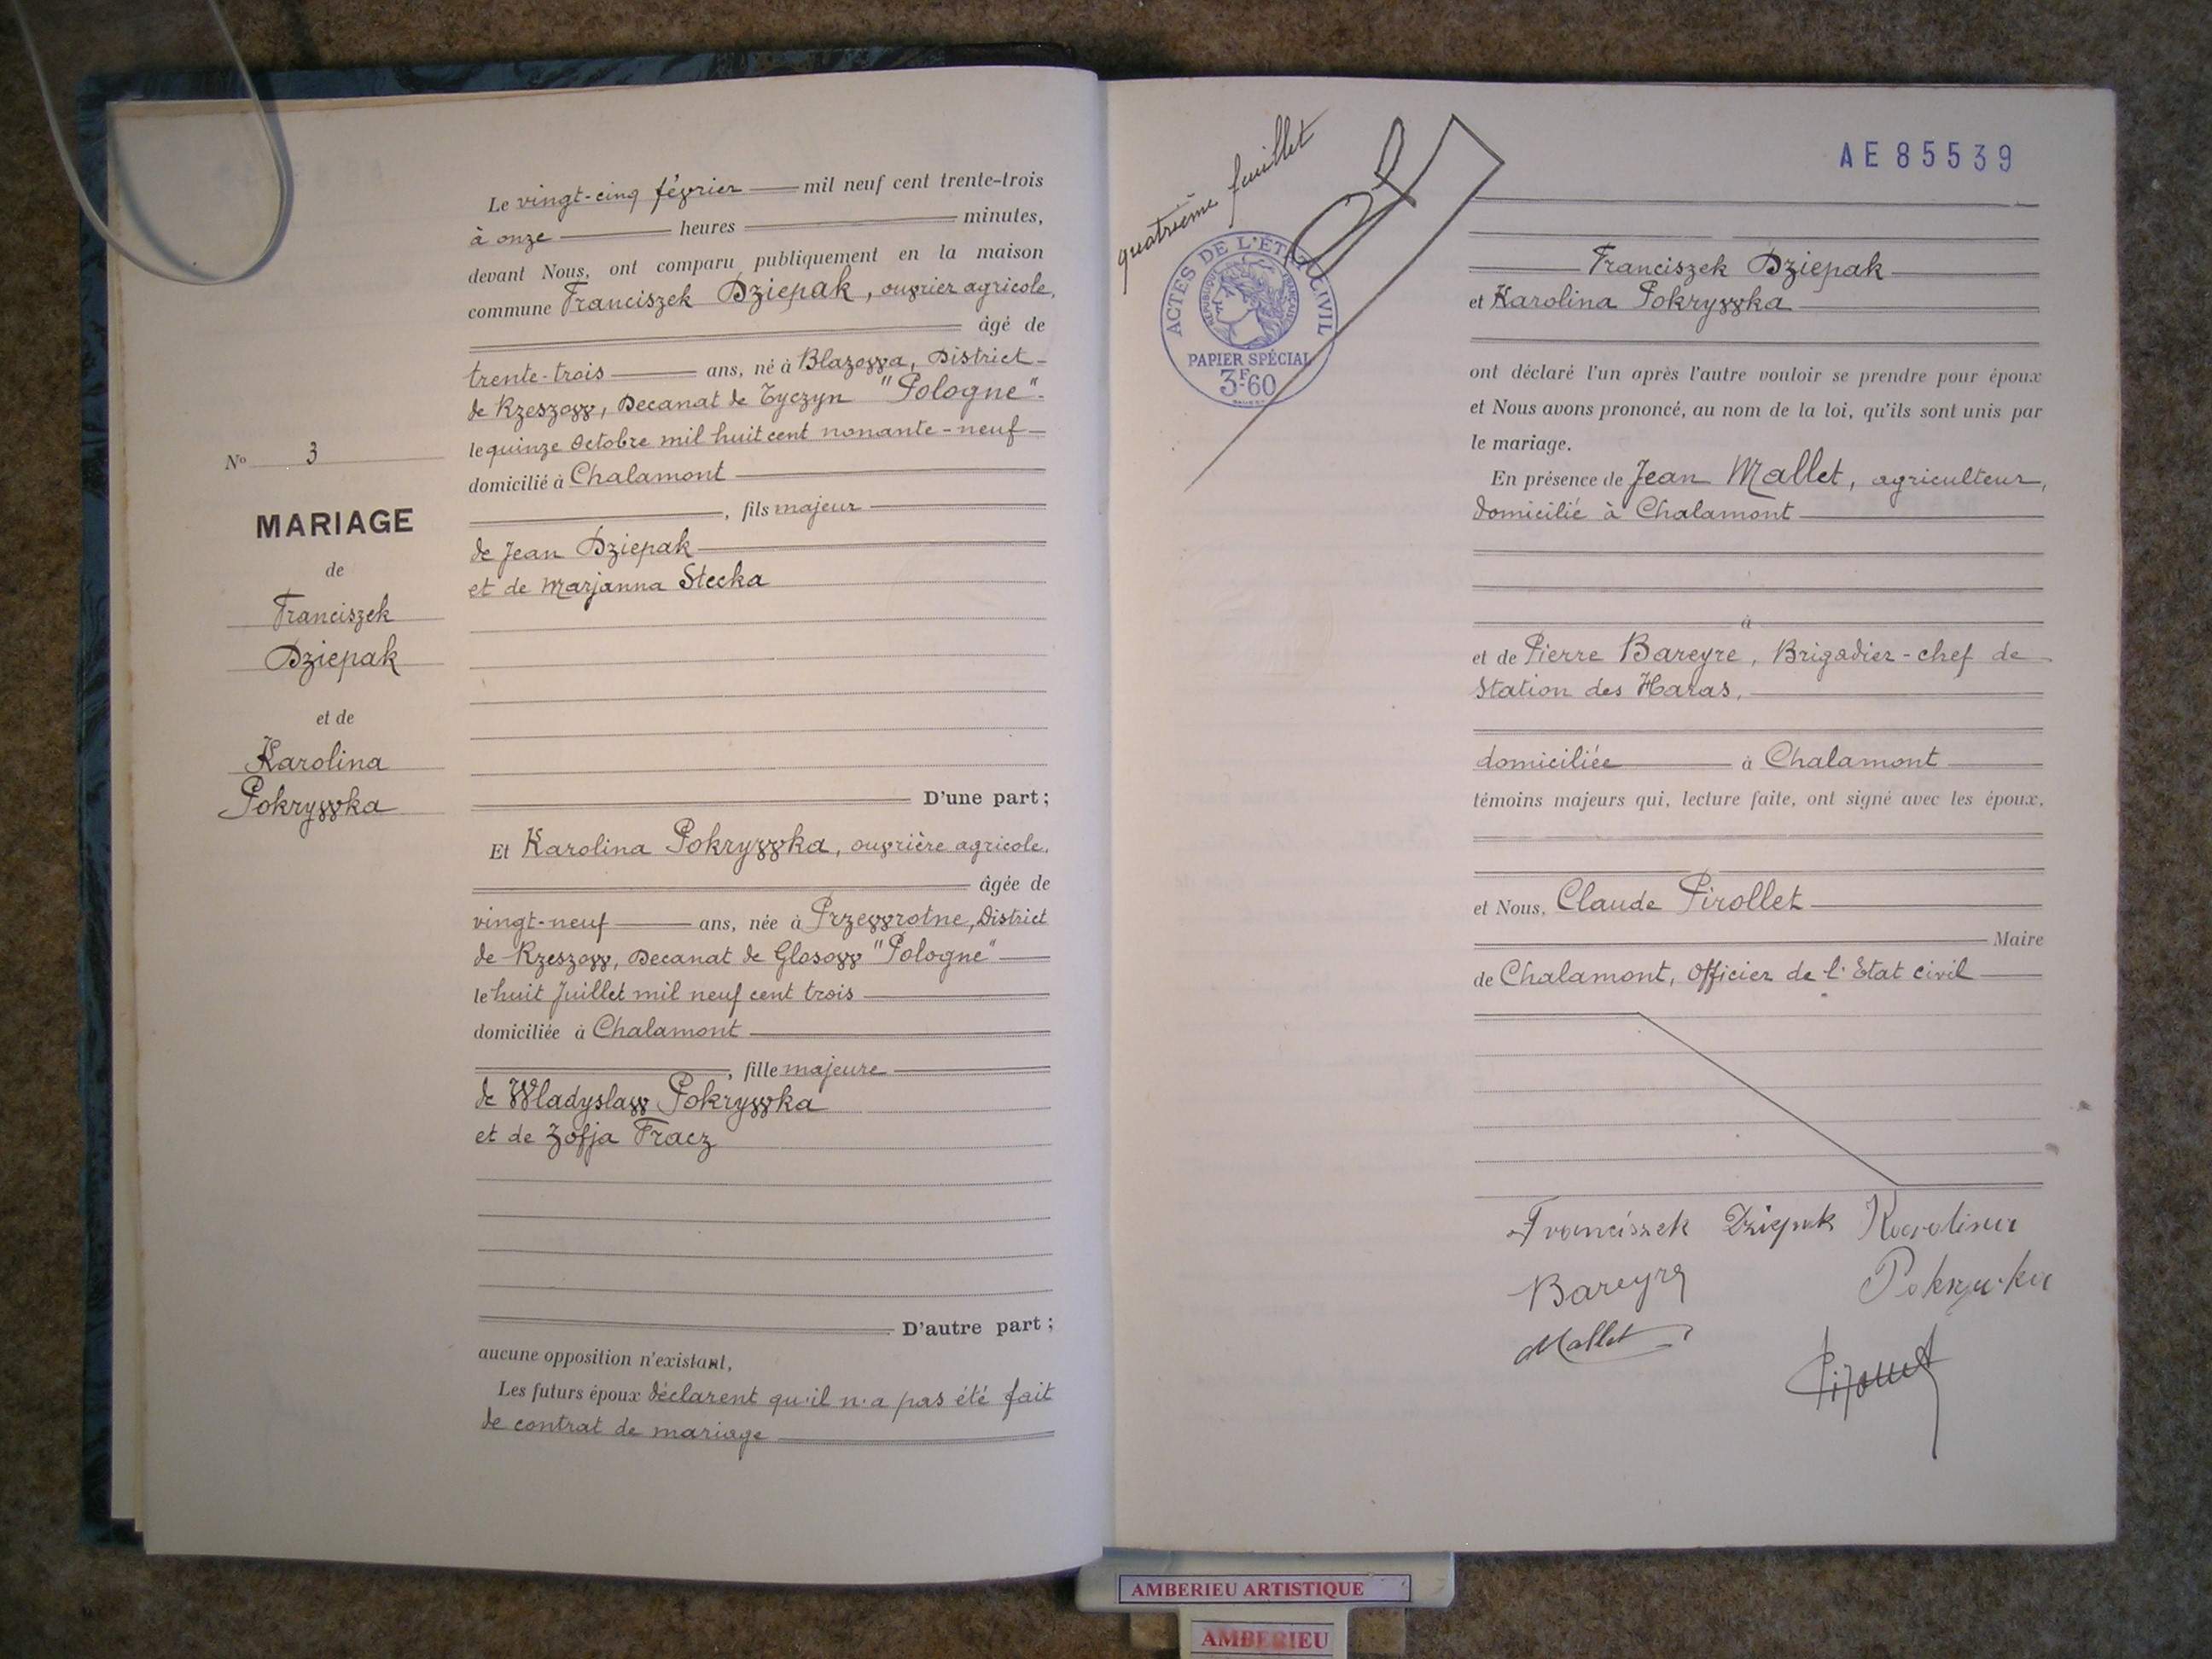 Le vingt-cinq février mil neuf cent trente-trois
à onze heures minutes,
devant Nous, ont comparu publiquement en la maison
commune Franciszek Dziepak, ouvrier agricole,
âgé de
trente-trois ans, né à Blazowa, District
de Rzeszow, Decanat de Tyczyn "Pologne"
le quinze Octobre mil huit cent nonante-neuf
domicilié à Chalamont
, fils majeur
de Jean Dziepak
et de Marjanna Stecka
D'une part ;
Et Karolina Pokrywka, ouvrière agricole,
âgée de
vingt-neuf ans, née à Przewrotne, District
de Rzeszow, Decanat de Glosow "Pologne"
le huit Juillet mil neuf cent trois
domiciliée à Chalamont
, fille majeure
de Wladyslaw Pokrywka
et de Zofja Fracz
D'autre part ;
aucune opposition n'existant,
Les futurs époux déclarent qu'il n'a pas été fait
de contrat de mariage
No 3
MARIAGE
de
Franciszek
Dziepak
et de
Karolina
Pokrywka
quatrième feuillet
ACTES DE L'ÉTAT CIVIL
RÉPUBLIQUE FRANÇAISE
PAPIER SPÉCIAL
3F60
AE85539
Franciszek Dziepak
et Karolina Pokrywka
ont déclaré l'un après l'autre vouloir se prendre pour époux
et Nous avons prononcé, au nom de la loi, qu'ils sont unis par
le mariage.
En présence de Jean Mallet, agriculteur,
domicilié à Chalamont
à
et de Pierre Bareyre, Brigadier-chef de
Station des Haras,
domiciliée à Chalamont
témoins majeurs qui, lecture faite, ont signé avec les époux,
et Nous, Claude Pirollet
Maire
de Chalamont, Officier de l'Etat civil
Franciszek Dziepak Karolina
Bareyre Pokrywka
Mallet
Pirollet
AMBERIEU ARTISTIQUE
AMBERIEU